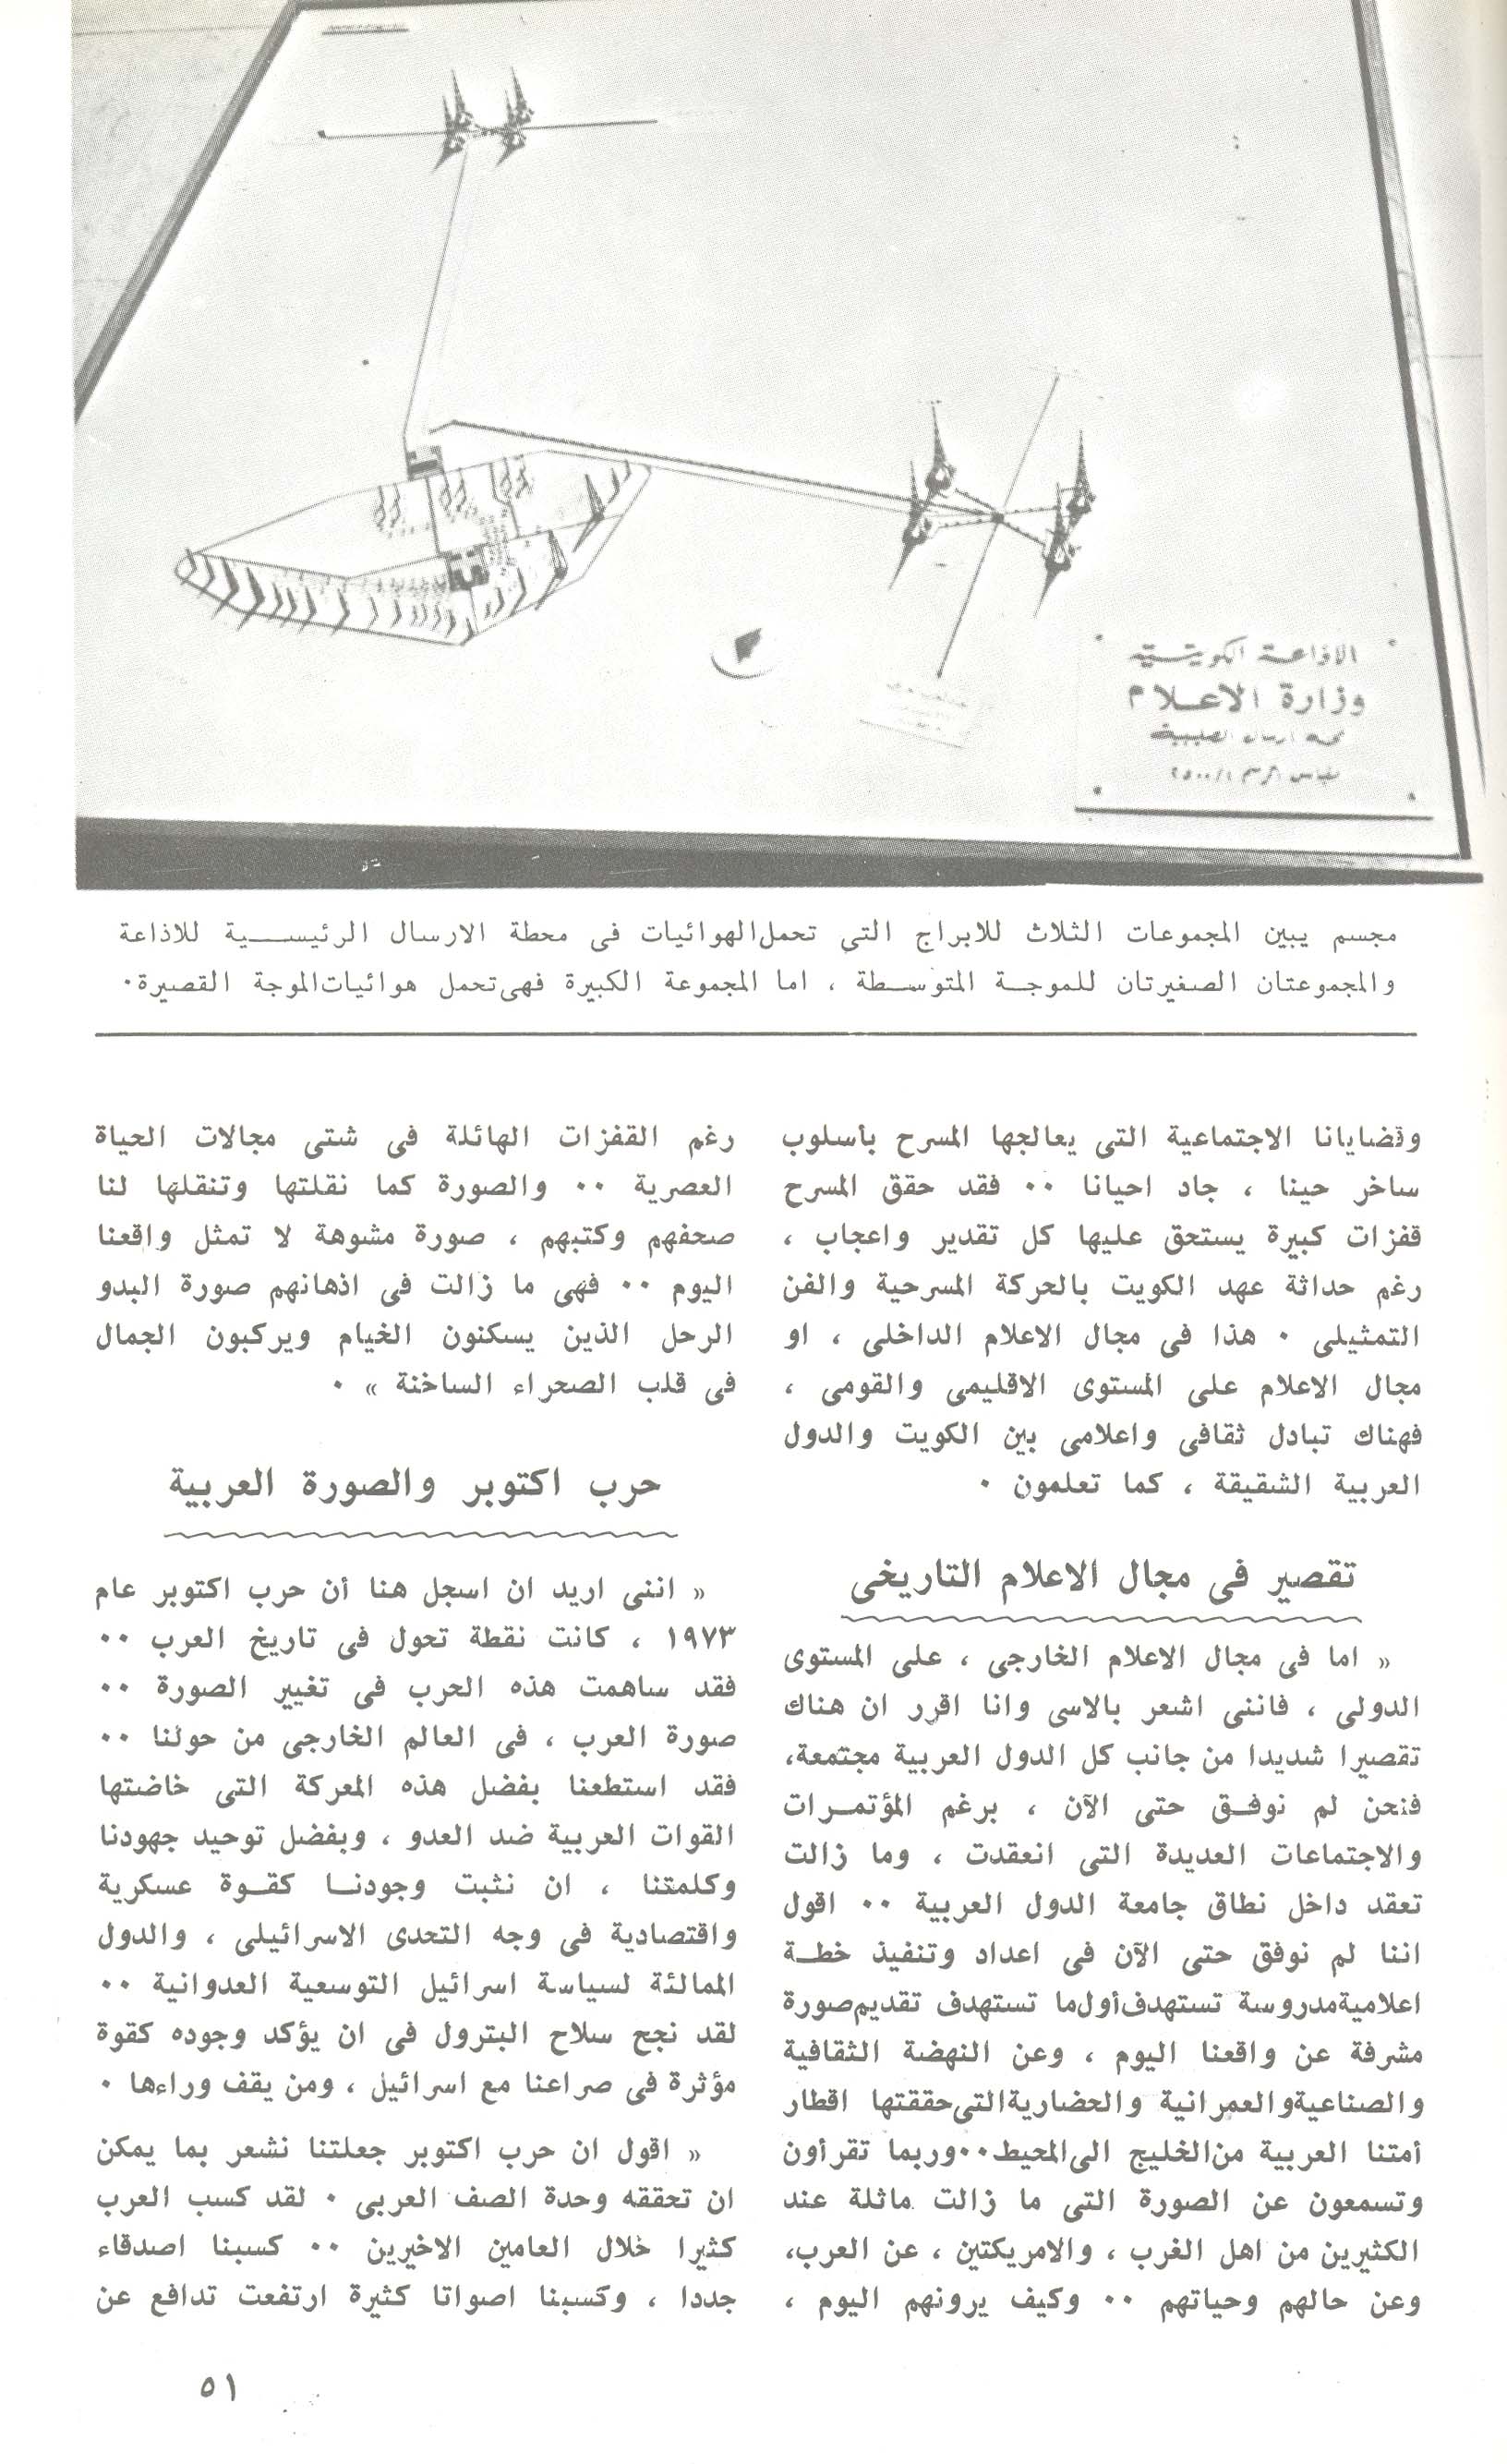 الاذاعة الكويتية
وزارة الاعلام
محطة ارسال الصبية
مقياس الرسم ٢٥٠٠/١
مجسم يبين المجموعات الثلاث للابراج التي تحمل الهوائيات فى محطة الارسال الرئيسية للاذاعة
والمجموعتان الصغيرتان للموجة المتوسطة ، اما المجموعة الكبيرة فهى تحمل هوائيات الموجة القصيرة٠
وقضايانا الاجتماعية التى يعالجها المسرح بأسلوب
ساخر حينا ، جاد احيانا ٠٠ فقد حقق المسرح
قفزات كبيرة يستحق عليها كل تقدير واعجاب ،
رغم حداثة عهد الكويت بالحركة المسرحية والفن
التمثيلى ٠ هذا فى مجال الاعلام الداخلى ، او
مجال الاعلام على المستوى الاقليمى والقومى ،
فهناك تبادل ثقافى واعلامى بين الكويت والدول
العربية الشقيقة ، كما تعلمون ٠
تقصير فى مجال الاعلام التاريخى
« اما فى مجال الاعلام الخارجى ، على المستوى
الدولى ، فاننى اشعر بالاسى وانا اقرر ان هناك
تقصيرا شديدا من جانب كل الدول العربية مجتمعة،
فنحن لم نوفق حتى الآن ، برغم المؤتمرات
والاجتماعات العديدة التى انعقدت ، وما زالت
تعقد داخل نطاق جامعة الدول العربية ٠٠ اقول
اننا لم نوفق حتى الآن فى اعداد وتنفيذ خطة
اعلامية مدروسة تستهدف أول ما تستهدف تقديم صورة
مشرفة عن واقعنا اليوم ، وعن النهضة الثقافية
والصناعية والعمرانية والحضارية التى حققتها اقطار
أمتنا العربية من الخليج الى المحيط٠٠ وربما تقرأون
وتسمعون عن الصورة التى ما زالت ماثلة عند
الكثيرين من اهل الغرب ، والامريكتين ، عن العرب،
وعن حالهم وحياتهم ٠٠ وكيف يرونهم اليوم ،
رغم القفزات الهائلة فى شتى مجالات الحياة
العصرية ٠٠ والصورة كما نقلتها وتنقلها لنا
صحفهم وكتبهم ، صورة مشوهة لا تمثل واقعنا
اليوم ٠٠ فهى ما زالت فى اذهانهم صورة البدو
الرحل الذين يسكنون الخيام ويركبون الجمال
فى قلب الصحراء الساخنة » ٠
حرب اكتوبر والصورة العربية
« اننى اريد ان اسجل هنا أن حرب اكتوبر عام
١٩٧٣ ، كانت نقطة تحول فى تاريخ العرب ٠٠
فقد ساهمت هذه الحرب فى تغيير الصورة ٠٠
صورة العرب ، فى العالم الخارجى من حولنا ٠٠
فقد استطعنا بفضل هذه المعركة التى خاضتها
القوات العربية ضد العدو ، وبفضل توحيد جهودنا
وكلمتنا ، ان نثبت وجودنا كقوة عسكرية
واقتصادية فى وجه التحدى الاسرائيلى ، والدول
الممالئة لسياسة اسرائيل التوسعية العدوانية ٠٠
لقد نجح سلاح البترول فى ان يؤكد وجوده كقوة
مؤثرة فى صراعنا مع اسرائيل ، ومن يقف وراءها ٠
« اقول ان حرب اكتوبر جعلتنا نشعر بما يمكن
ان تحققه وحدة الصف العربى ٠ لقد كسب العرب
كثيرا خلال العامين الاخيرين ٠٠ كسبنا اصدقاء
جددا ، وكسبنا اصواتا كثيرة ارتفعت تدافع عن
٥١